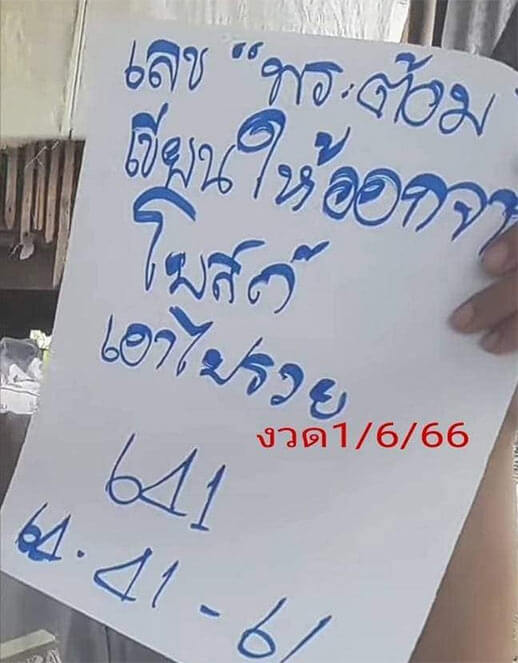 เลข "พระต้อม
เขียนให้ออกจาก
โบสถ์
เอาไปรวย
งวด1/6/66
641
64. 41 - 61